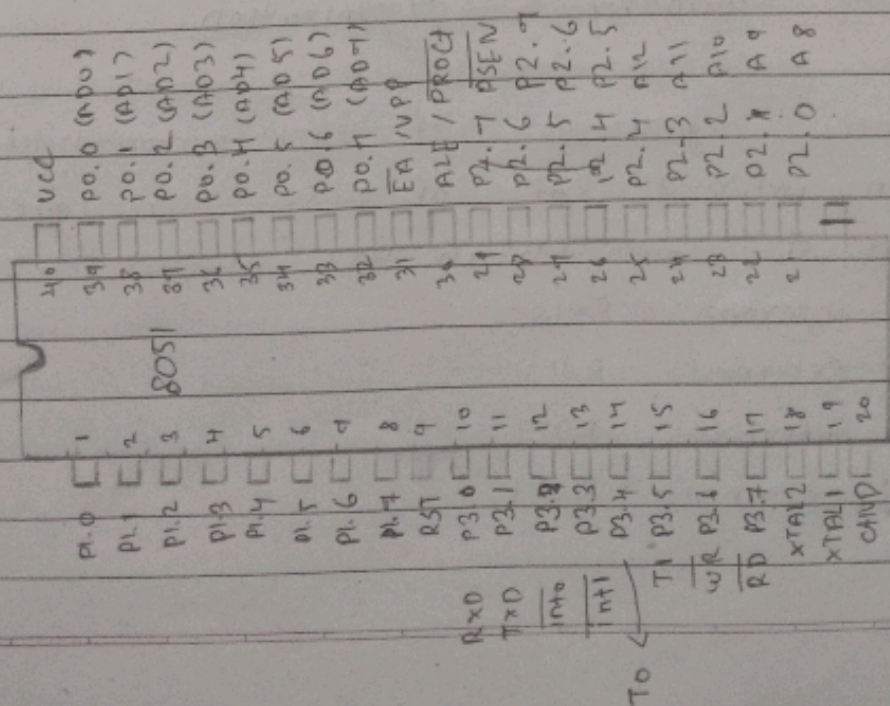 8051
P1.0 1
P1.1 2
P1.2 3
P1.3 4
P1.4 5
P1.5 6
P1.6 7
P1.7 8
RST 9
RxD P3.0 10
TxD P3.1 11
Int0 P3.2 12
Int1 P3.3 13
T0 P3.4 14
T1 P3.5 15
WR P3.6 16
RD P3.7 17
XTAL2 18
XTAL1 19
GND 20
40 VCC
39 P0.0 (AD0)
38 P0.1 (AD1)
37 P0.2 (AD2)
36 P0.3 (AD3)
35 P0.4 (AD4)
34 P0.5 (AD5)
33 P0.6 (AD6)
32 P0.7 (AD7)
31 EA / VPP
30 ALE / PROG
29 P2.7 PSEN
28 P2.6 P2.7
27 P2.5 P2.6
26 4 P2.5
25 P2.4 A12
24 P2.3 A11
23 P2.2 A10
22 P2.1 A9
2 P2.0 A8